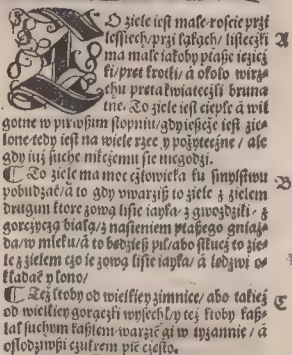 To ziele iest małe/roście przi
lessiech/przi łąkach/ listeczki
ma małe iakoby ptasze iezicz
ki/pret krotki/ á około wirz=
chu preta kwiateczki bruna
tne. To ziele iest ciepłe á wil
gotne w pirwßim stopniu/gdy ießcże iest zie=
lone tedy iest na wiele rzecz y pożytecżne / ale
gdy iuż suche nikcżemu sie niegodzi.
¶ To ziele ma moc cżłowieka ku smylstwu
pobudzać/á to gdy vwarziß to ziele z zielem
drugim ktore zową lisie iayka/ z gwozdziki/ z
gorcżycą białą/z nasieniem ptaßego gniaz=
da/w mleku/á to będzieß pił/ abo stłucz to zie=
le z zielem co ie zową lisie iayka/ á ledzwi o=
kładać y łono/
¶ Też ktoby od wielkiey zimnice/ abo takież
od wielkiey gorącżki wysechł/y też ktoby kaß=
lał suchym kaßlem/warzić gi w tyzannie/ á
osłodziwßi czukrem pić cżęsto.
A
B
C